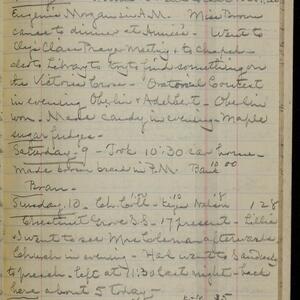 Eugenia Morgan in P.M. Miss Brown
came to dinner at Annie's - Went to
Class Prayer Meeting & to chapel -
also to Library to try to find something on
the Victoria Cross - Oratorical Contest
in evening Oberlin & Adelbert - Oberlin
won. Made candy in evening - Maple
sugar fudges -
Saturday - 9 - Took 10:30 car home -
made brown bread in P.M. Baue 10 00
Bran -
Sunday, 10 - Ch. Coll - .10 .18 1 28
Chestnut Grove S.S. - 17 present - Lillie
& I went to see Mrs Coleman afterwards
Church in evening - Hal went to Sandusky
to preach - left at 11:30 last night - back
here about 5 today -